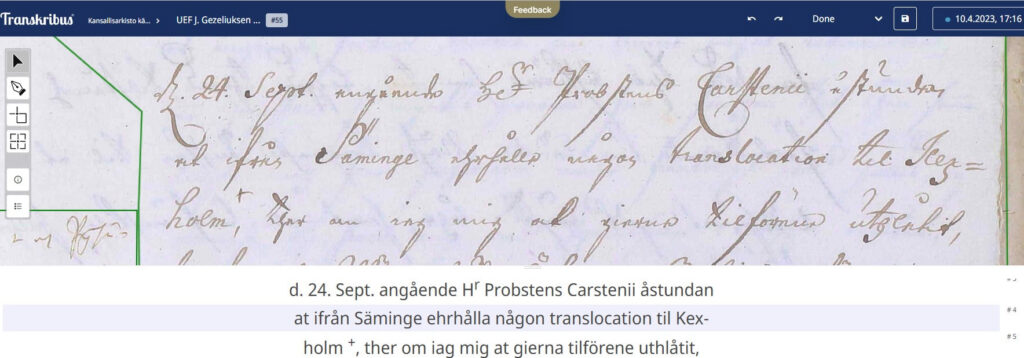 Feedback
Transkribus
Kansallisarkisto kä... > UEF J. Gezeliuksen ... #55
Done
10.4.2023, 17:16
d. 24. Sept. angående Hr Probstens Carstenii åstundan
at ifrån Säminge ehrhålla någon translocation til Kex=
holm +, ther om iag mig at gierna tilförene uthlåtit,
d. 24. Sept. angående Hr Probstens Carstenii åstundan
at ifrån Säminge ehrhålla någon translocation til Kex-
#4
holm +, ther om iag mig at gierna tilförene uthlåtit,
#5